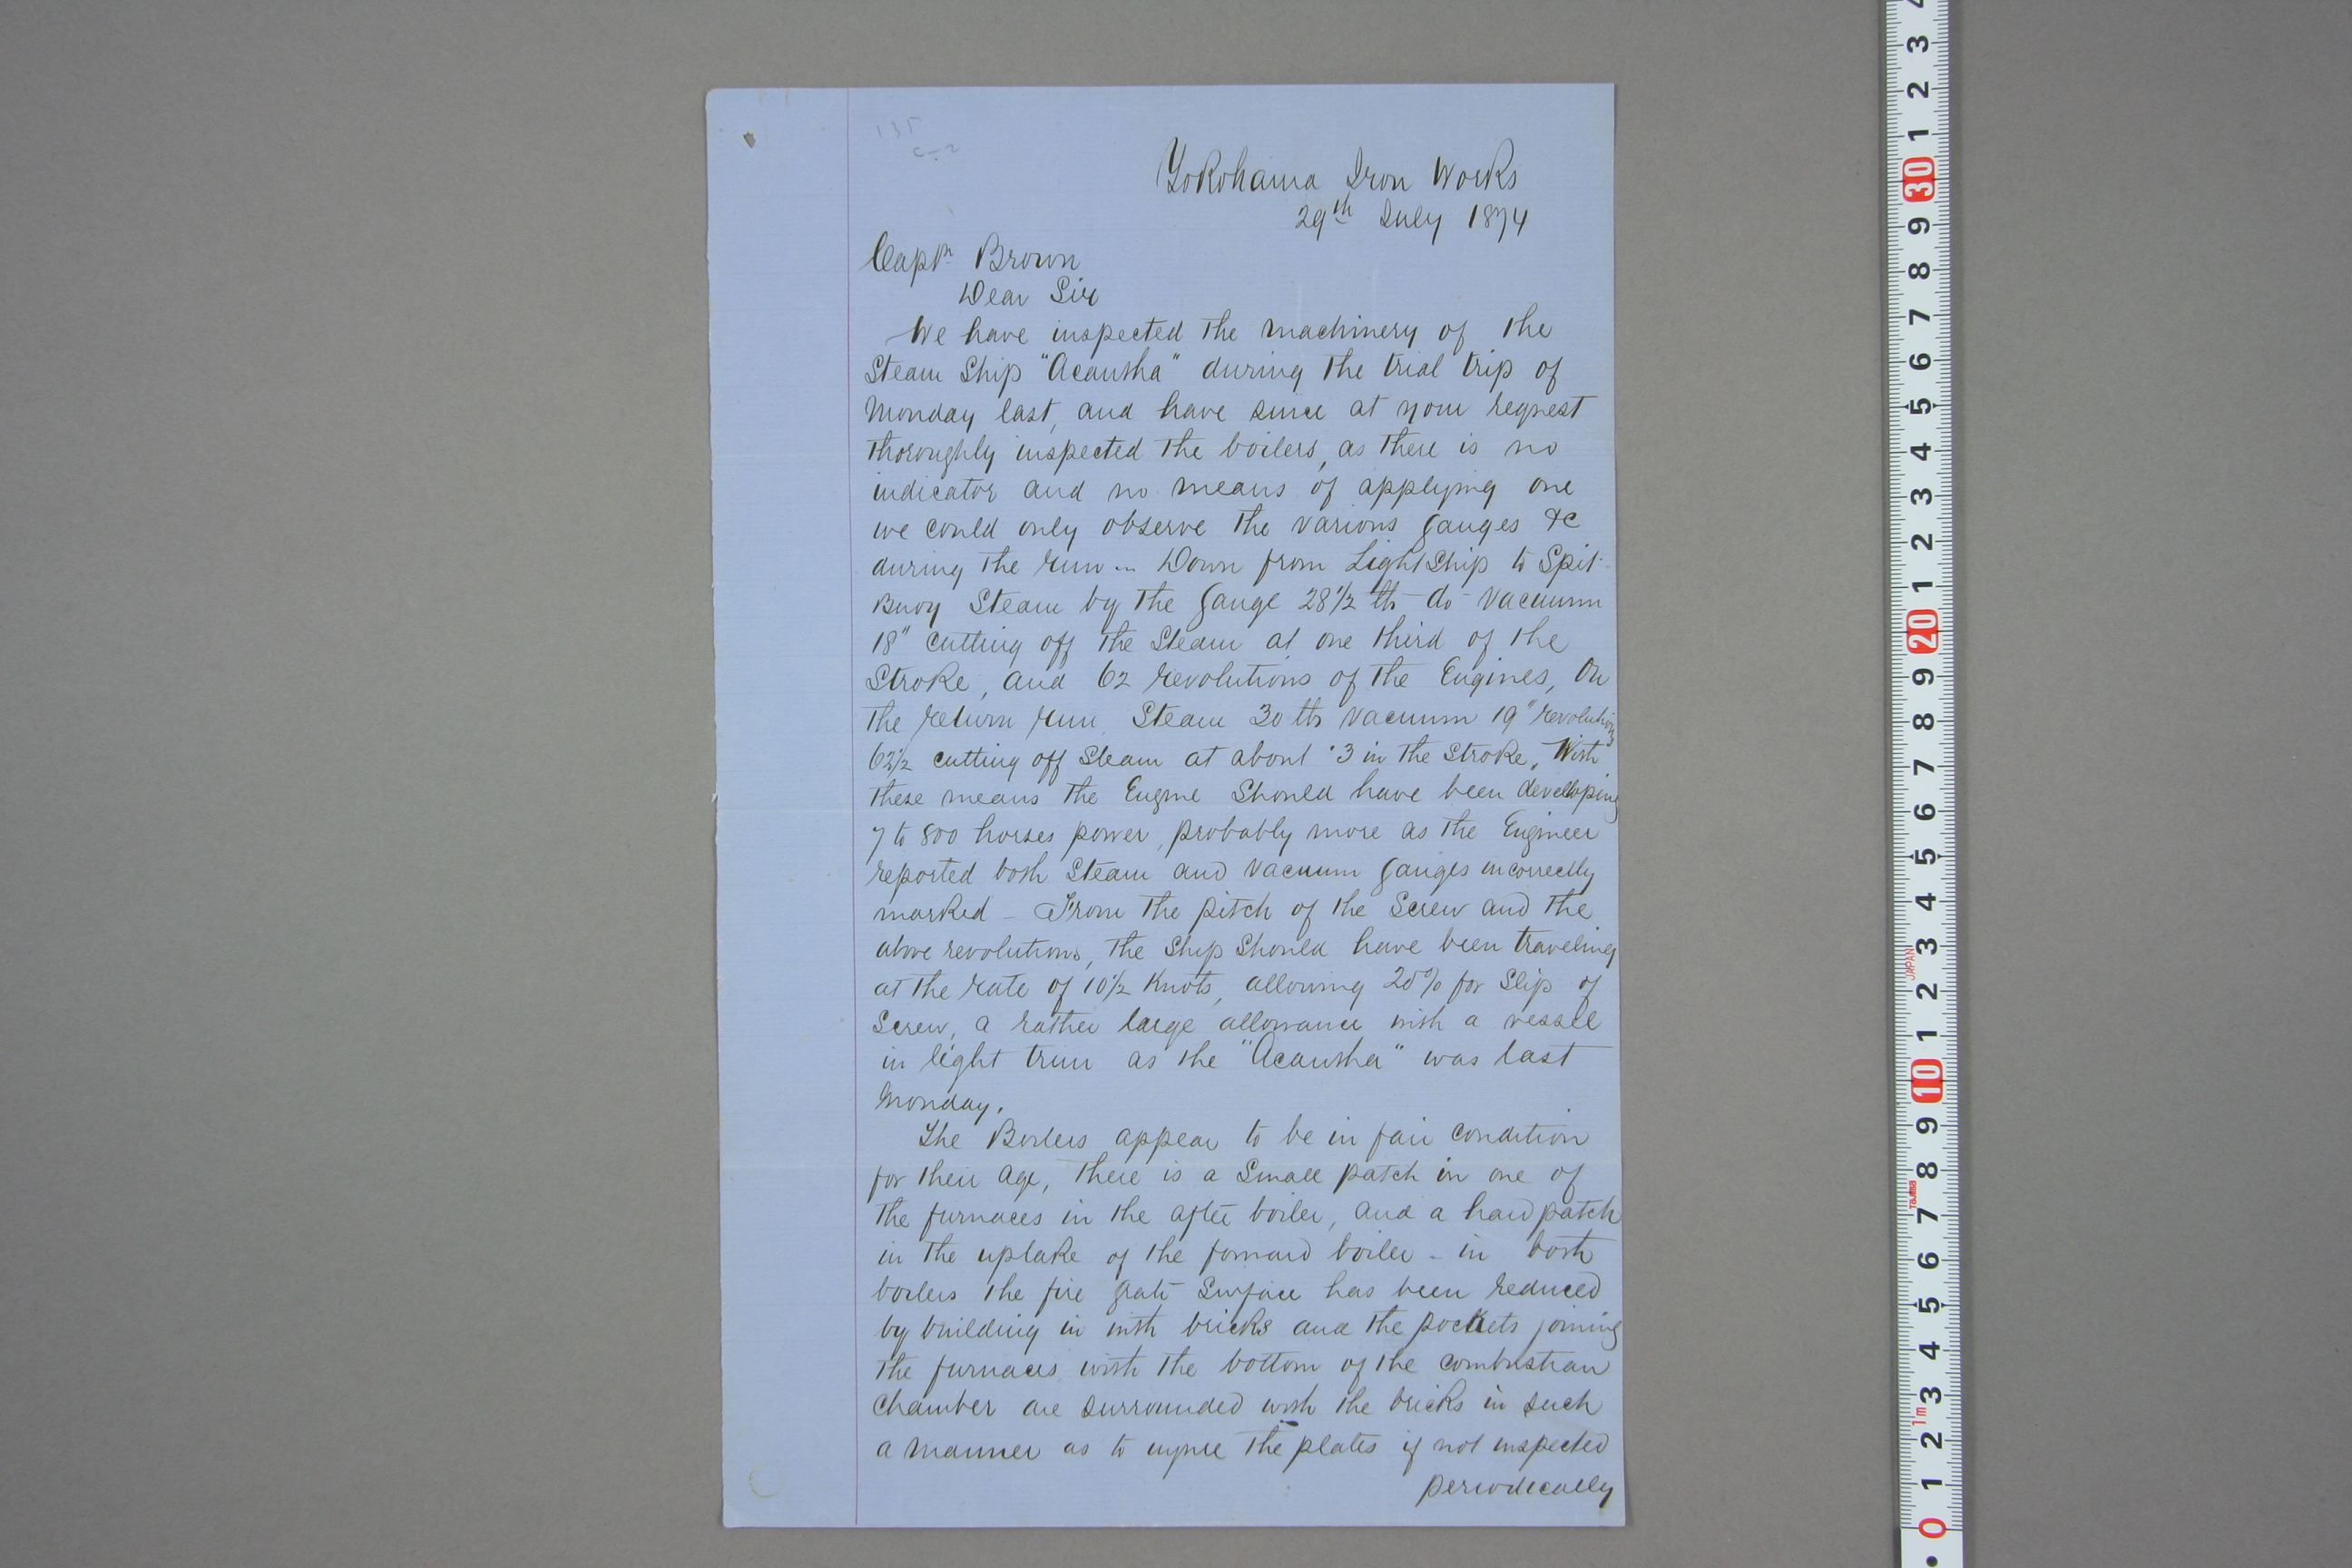 135
C-2
Yokohama Iron Works
29th July 1874
Captn Brown
Dear Sir
We have inspected the machinery of the
Steam Ship "Acantha" during the trial trip of
Monday last, and have since at your request
thoroughly inspected the boilers, as there is no
indicator and no means of applying one
we could only observe the various gauges &c
during the run — Down from Light Ship to Spit
Buoy Steam by the gauge 28 1/2 lbs do Vacuum
18" cutting off the Steam at one third of the
Stroke, and 62 revolutions of the Engines, On
the return run Steam 30 lbs Vacuum 19" revolutions
62 1/2 cutting off Steam at about ·3 in the Stroke, With
these means the Engine Should have been developing
7 to 800 horses power, probably more as the Engineer
reported both Steam and Vacuum gauges incorrectly
marked — From the pitch of the Screw and the
above revolutions, the Ship Should have been traveling
at the rate of 10 1/2 Knots, allowing 20% for Slip of
Screw, a rather large allowance with a vessel
in light trim as the "Acantha" was last
Monday.
The Boilers appear to be in fair condition
for their age, there is a Small patch in one of
the furnaces in the after boiler, and a hard patch
in the uptake of the forward boiler — in both
boilers the fire grate Surface has been reduced
by building in with bricks and the pockets joining
the furnaces with the bottom of the combustion
Chamber are surrounded with the bricks in such
a manner as to injure the plates if not inspected
periodically
4
3
2
1
30
9
8
7
6
5
4
3
2
1
20
9
8
7
6
5
4
3
JAPAN
2
1
10
9
8
7
Tajima
6
5
4
3
1m
2
1
0